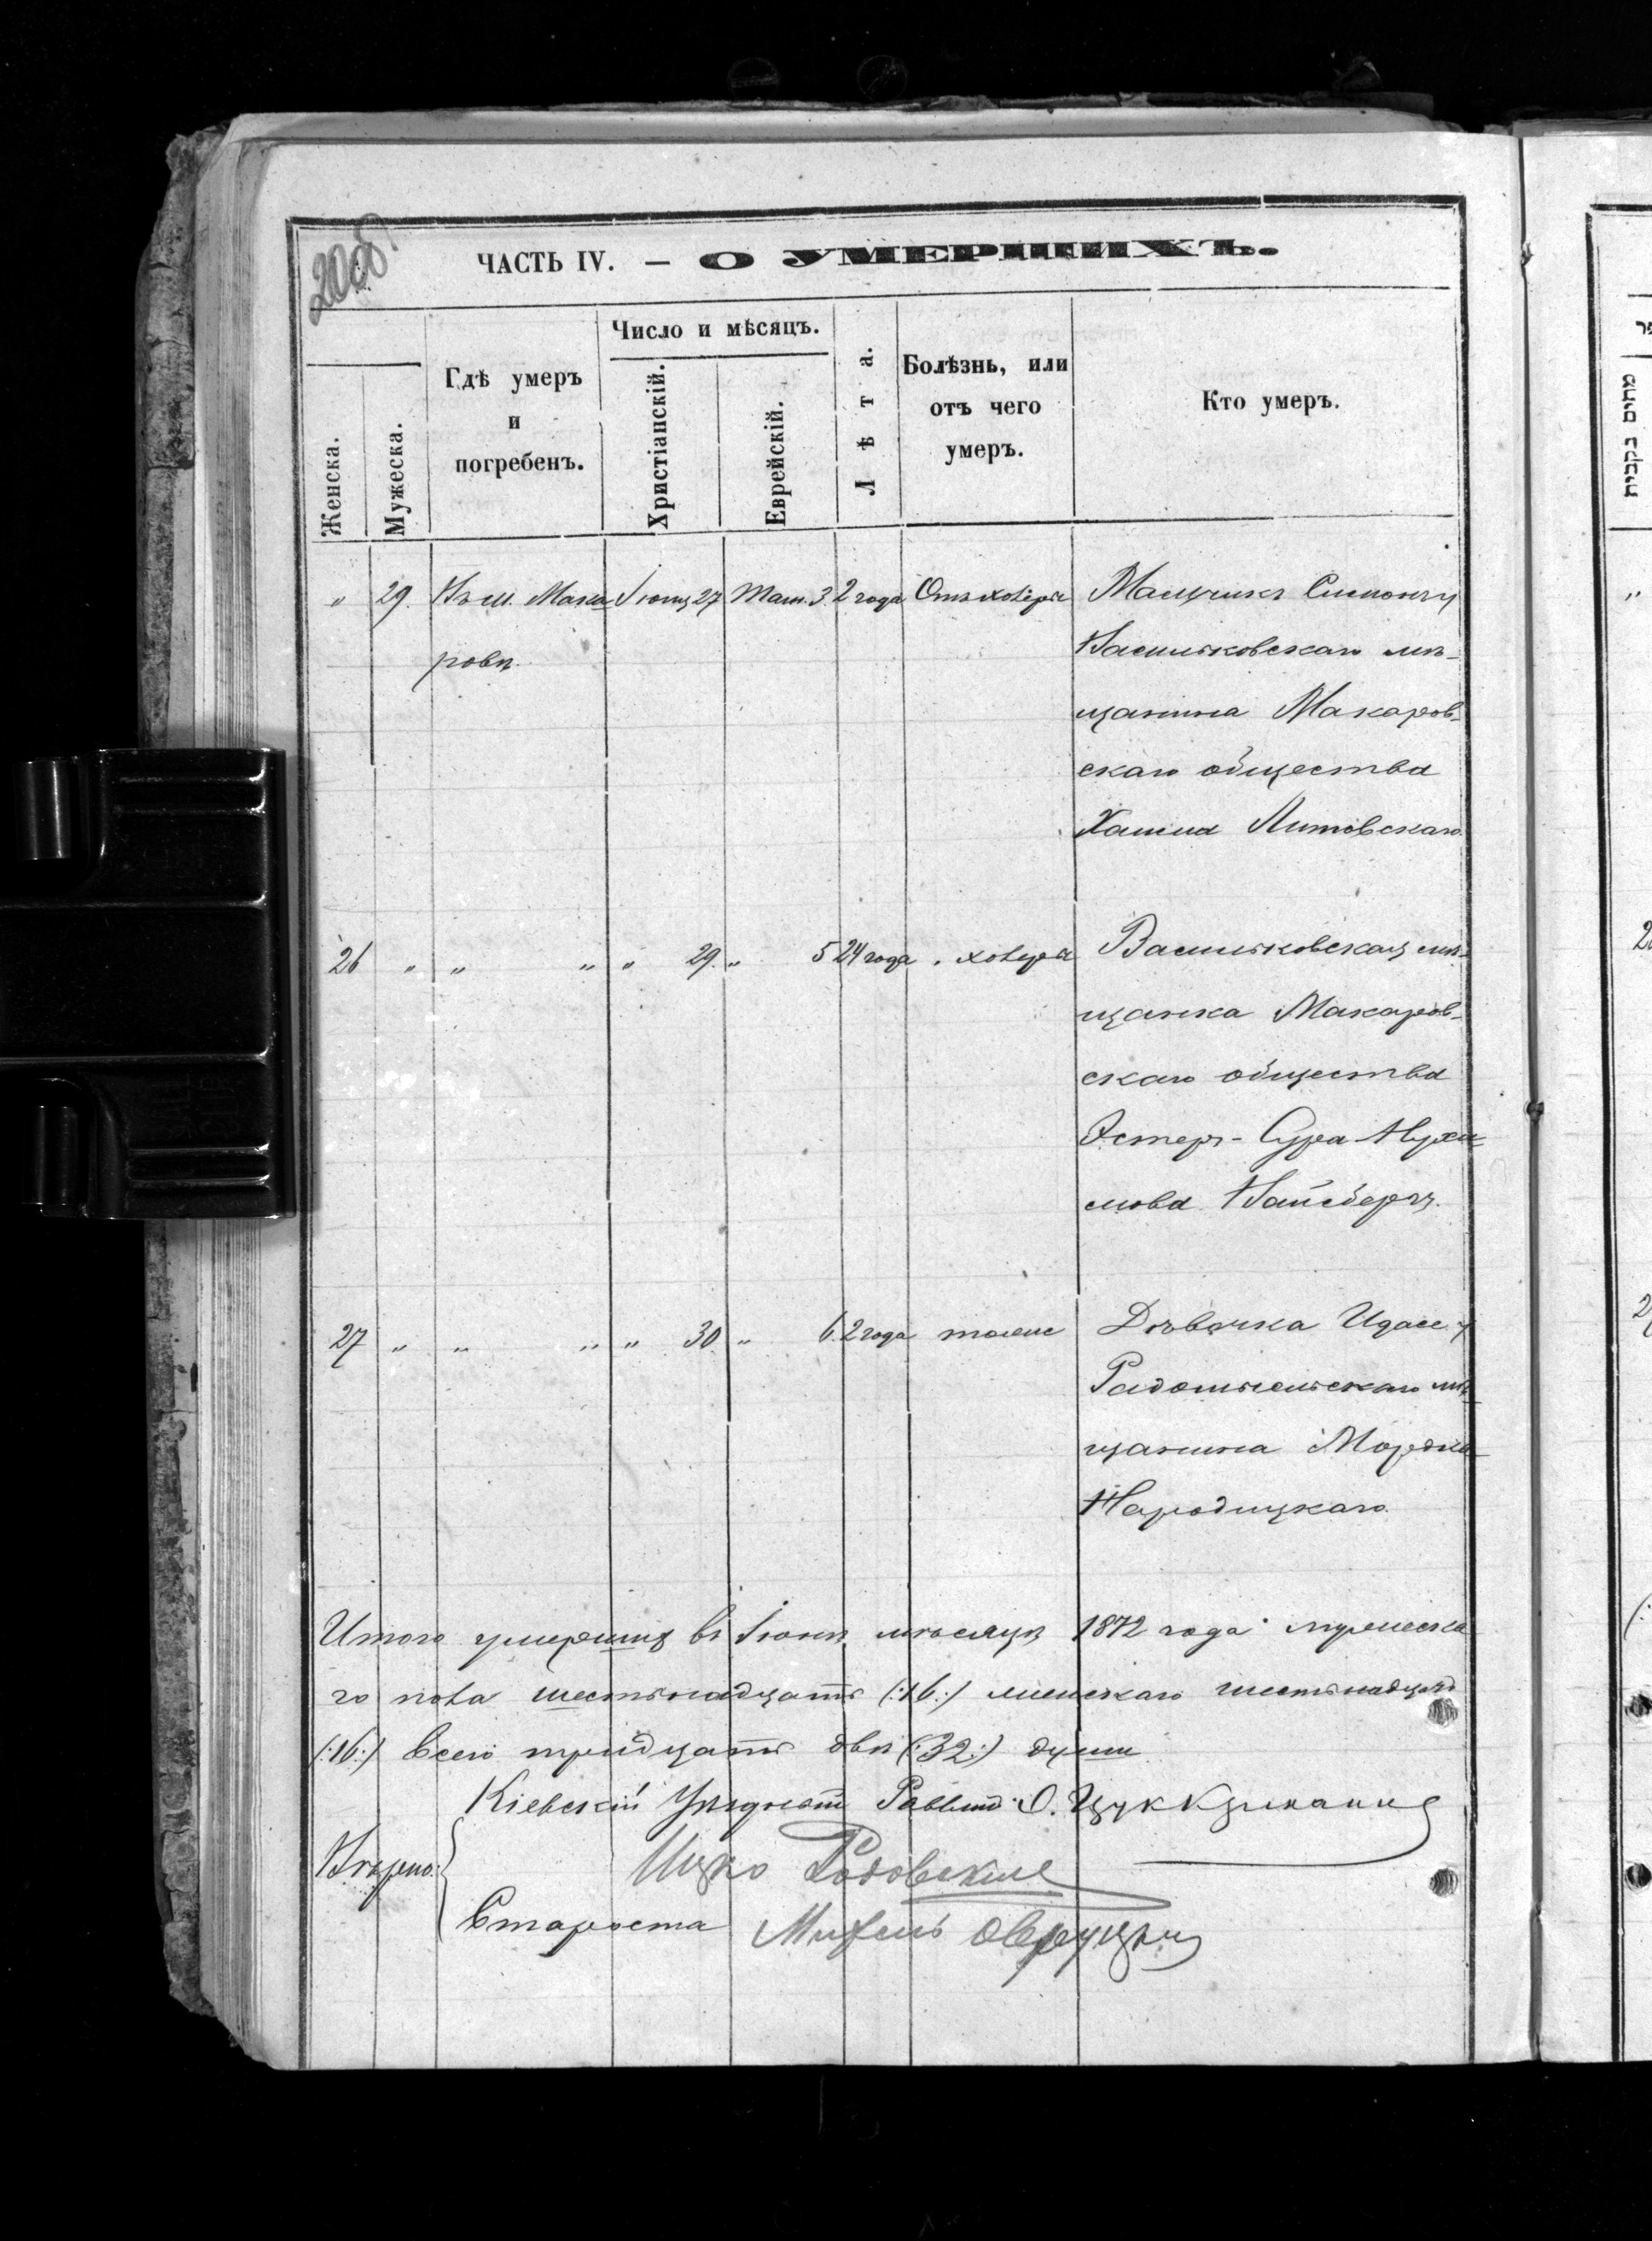 2008
ЧАСТЬ IV. — О УМЕРШИХЪ.
Женска.
Мужеска.
Гдѣ умеръ
и
погребенъ.
Число и мѣсяцъ.
Христіанскій.
Еврейскій.
Лѣта.
Болѣзнь, или
отъ чего
умеръ.
Кто умеръ.
" 29. Въ м. Мака Іюня 27 Там. 3. 2 года Отъ холеры Мальчикъ
ровѣ.
Васильковскаго мѣ-
щанина Макаров-
скаго общества
Хаима Литовскаго
26 " " " " 29. " 5 24 года " холера Васильковская мѣ-
щанка Макаров-
скаго общества
Эстеръ-Сура Нухи
мова Вайсбергъ.
27 " " " " 30. " 6. 2 года тоже Дѣвочка
Радомысльскаго мѣ
щанина Мордка
Народицкаго
Итого умершихъ въ Іюнѣ мѣсяцѣ 1872 года мужеска
го пола шестьнадцать (:16:) женскаго шестьнадцать
(:16:) всего тридцать двѣ (:32:) души
Кіевскій Уѣздный Раввинъ О. Цуккерманъ
Вѣрно: Ицко
Староста Михель Овруцкій
מתים נקבות